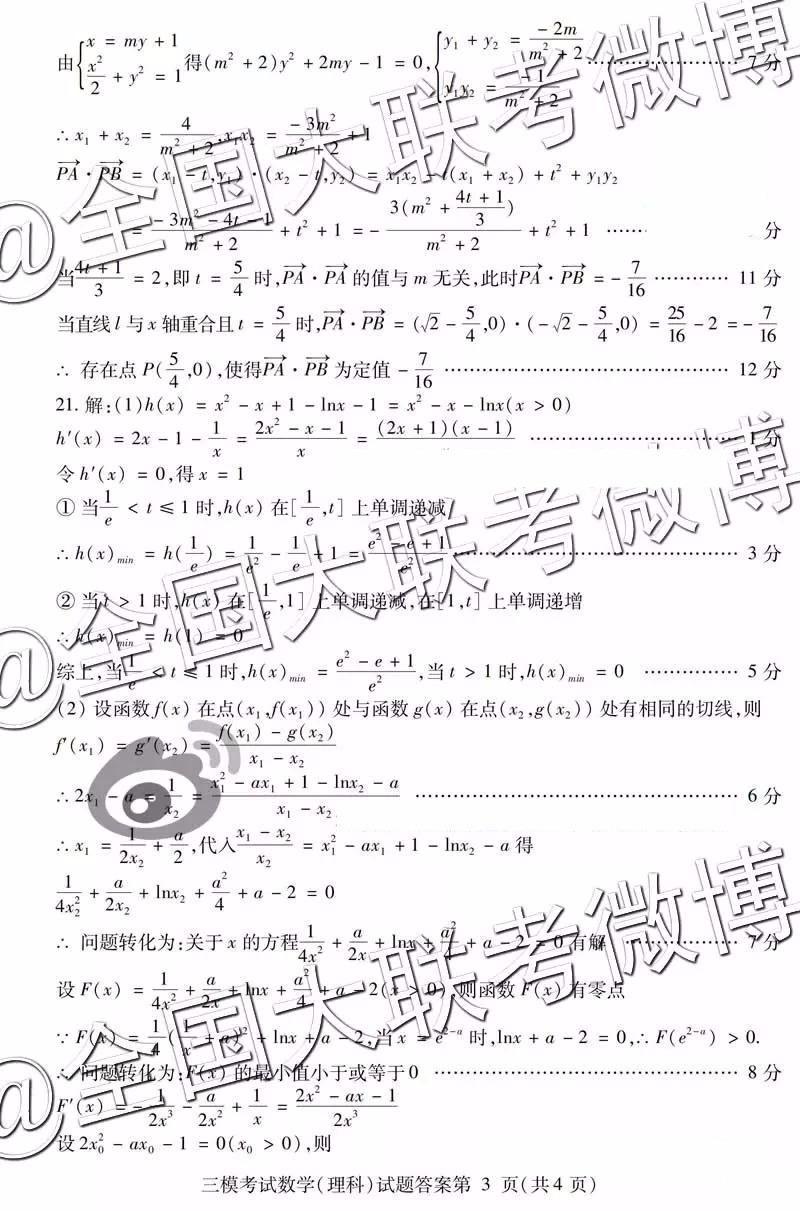 由{x = my + 1, x²/2 + y² = 1 得(m² + 2)y² + 2my − 1 = 0, {y₁ + y₂ = −2m/(m² + 2), y₁y₂ = −1/(m² + 2) …… 7 分
∴ x₁ + x₂ = 4/(m² + 2), x₁x₂ = −3m²/(m² + 2) + 1
PA→ · PB→ = (x₁ − t, y₁) · (x₂ − t, y₂) = x₁x₂ − t(x₁ + x₂) + t² + y₁y₂
= (−3m² − 4t − 1)/(m² + 2) + t² + 1 = −3(m² + (4t + 1)/3)/(m² + 2) + t² + 1 …… 分
当(4t + 1)/3 = 2,即 t = 5/4 时,PA→ · PA→ 的值与 m 无关,此时PA→ · PB→ = −7/16 …… 11 分
当直线 l 与 x 轴重合且 t = 5/4 时,PA→ · PB→ = (√2 − 5/4,0) · (−√2 − 5/4,0) = 25/16 − 2 = −7/16
∴ 存在点 P(5/4,0),使得PA→ · PB→ 为定值 −7/16 …… 12 分
21. 解:(1)h(x) = x² − x + 1 − lnx − 1 = x² − x − lnx(x > 0)
h′(x) = 2x − 1 − 1/x = (2x² − x − 1)/x = (2x + 1)(x − 1) …… 1 分
令 h′(x) = 0,得 x = 1
① 当1/e < t ≤ 1 时,h(x) 在[1/e,t] 上单调递减
∴ h(x)min = h(1/e) = 1/e² − 1/e + 1 = (e² − e + 1)/e² …… 3 分
② 当 t > 1 时,h(x) 在[1/e,1] 上单调递减,在[1,t] 上单调递增
∴ h(x)min = h(1) = 0
综上,当1/e < t ≤ 1 时,h(x)min = (e² − e + 1)/e²,当 t > 1 时,h(x)min = 0 …… 5 分
(2) 设函数 f(x) 在点(x₁,f(x₁)) 处与函数 g(x) 在点(x₂,g(x₂)) 处有相同的切线,则
f′(x₁) = g′(x₂) = (f(x₁) − g(x₂))/(x₁ − x₂)
∴ 2x₁ − a = 1/x₂ = (x₁² − ax₁ + 1 − lnx₂ − a)/(x₁ − x₂) …… 6 分
∴ x₁ = 1/(2x₂) + a/2,代入(x₁ − x₂)/x₂ = x₁² − ax₁ + 1 − lnx₂ − a 得
1/(4x₂²) + a/(2x₂) + lnx₂ + a²/4 + a − 2 = 0
∴ 问题转化为:关于 x 的方程1/(4x²) + a/(2x) + lnx + a²/4 + a − 2 = 0 有解 …… 7 分
设 F(x) = 1/(4x²) + a/(2x) + lnx + a²/4 + a − 2(x > 0),则函数 F(x) 有零点
∵ F(x) = 1/4(1/x + a)² + lnx + a − 2,当 x = e²⁻ᵃ 时,lnx + a − 2 = 0,∴ F(e²⁻ᵃ) > 0.
∴ 问题转化为:F(x) 的最小值小于或等于 0 …… 8 分
F′(x) = −1/(2x³) − a/(2x²) + 1/x = (2x² − ax − 1)/(2x³)
设 2x₀² − ax₀ − 1 = 0(x₀ > 0),则
三模考试数学(理科)试题答案第 3 页(共 4 页)
@全国大联考微博
@全国大联考微博
@全国大联考微博